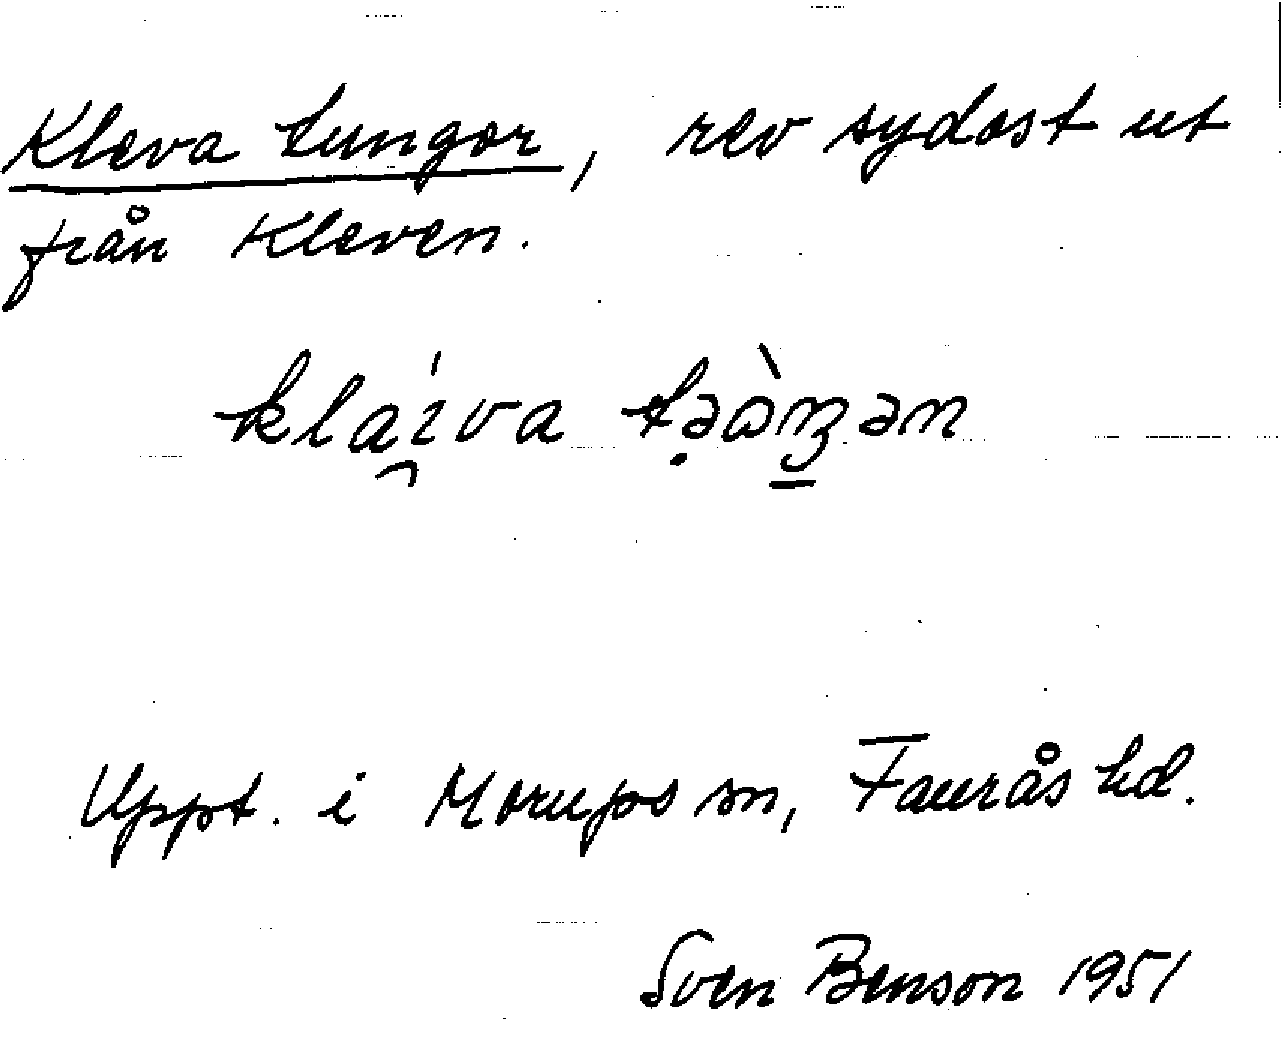 Kleva tungor, rev sydost ut
från Kleven.
kla̯íva
Uppt. i Morups sn, Faurås hd.
Sven Benson 1951